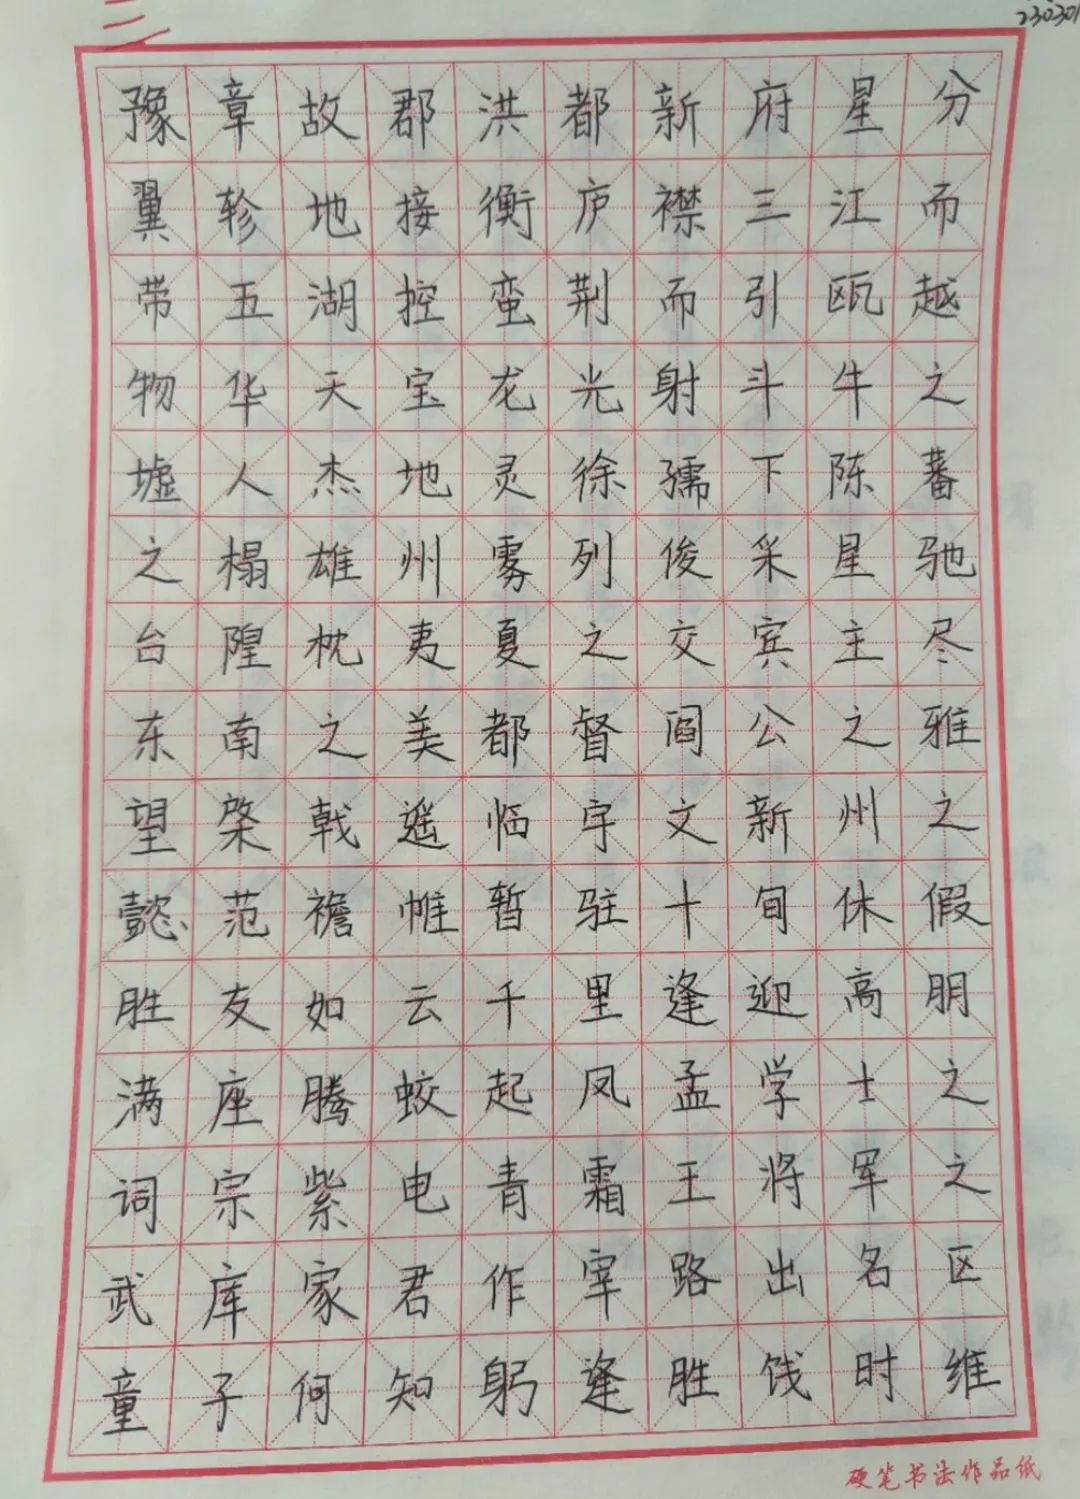 230301
三
豫章故郡洪都新府星分
翼轸地接衡庐襟三江而
带五湖控蛮荆而引瓯越
物华天宝龙光射斗牛之
墟人杰地灵徐孺下陈蕃
之榻雄州雾列俊采星驰
台隍枕夷夏之交宾主尽
东南之美都督阎公之雅
望棨戟遥临宇文新州之
懿范襜帷暂驻十旬休假
胜友如云千里逢迎高朋
满座腾蛟起凤孟学士之
词宗紫电青霜王将军之
武库家君作宰路出名区
童子何知躬逢胜饯时维
硬笔书法作品纸